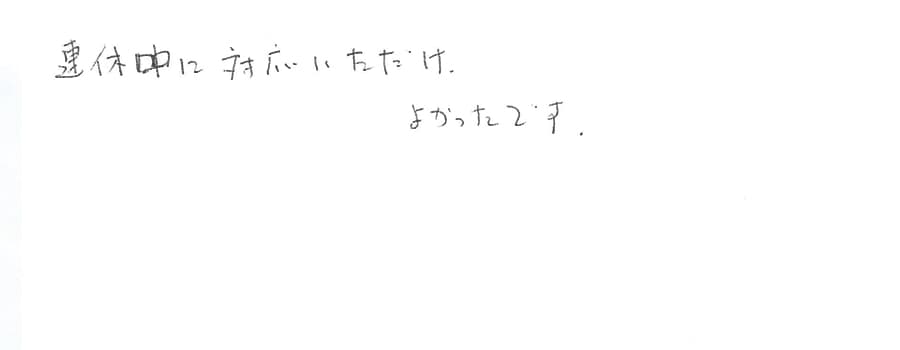 連休中に対応いただけ.
よかったです.